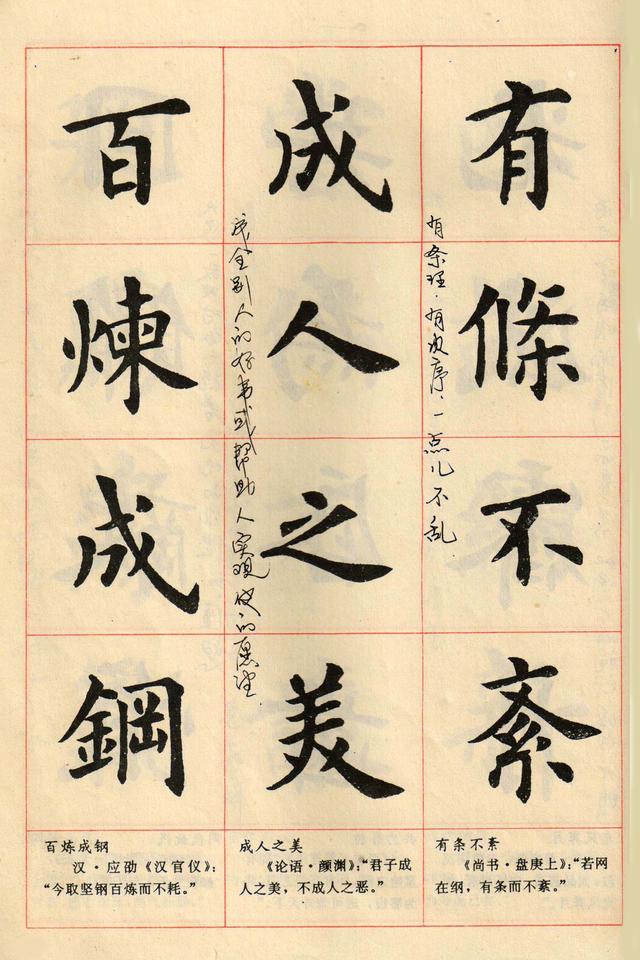 有條不紊
有条理·有次序·一点儿不乱
成人之美
成全别人的好事或帮助人实现他的愿望
百煉成鋼
百炼成钢
汉·应劭《汉官仪》：
“今取坚钢百炼而不耗。”
成人之美
《论语·颜渊》：“君子成
人之美，不成人之恶。”
有条不紊
《尚书·盘庚上》：“若网
在纲，有条而不紊。”